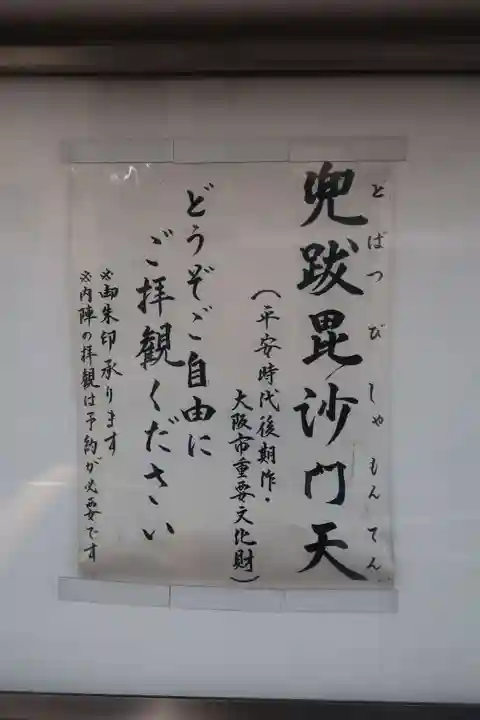 とばつびしゃもんてん
兜跋毘沙門天
（平安時代後期作・
大阪市重要文化財）
どうぞご自由に
ご拝観ください
※御朱印承ります
※内陣の拝観は予約が必要です